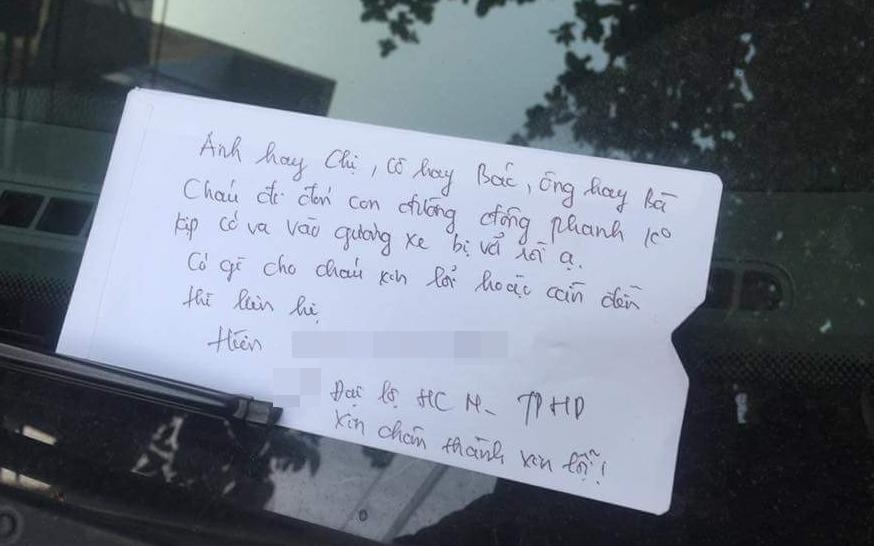 Anh hay Chị, Cô hay Bác, ông hay Bà
Cháu đi đến con đường đông phanh ko
kịp có va vào gương xe bị vỡ rồi ạ.
Có gì cho cháu xin lỗi hoặc cần đền
thì liên hệ
Hiền
Đại lộ HCM - TPHD
Xin chân thành xin lỗi!